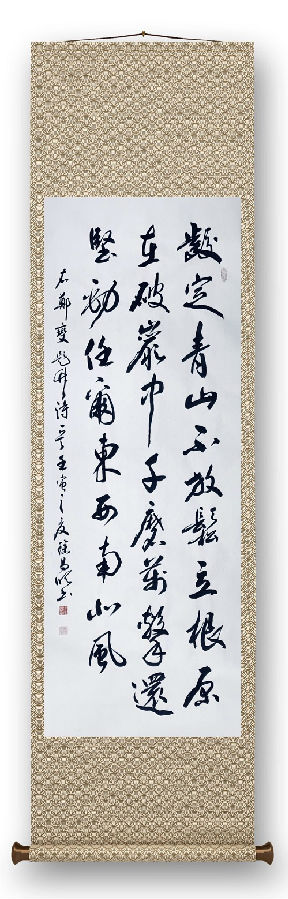 齩定青山不放鬆立根原
在破巖中千磨萬擊還
堅勁任爾東西南北風
右鄭燮題竹詩一首壬寅之夏